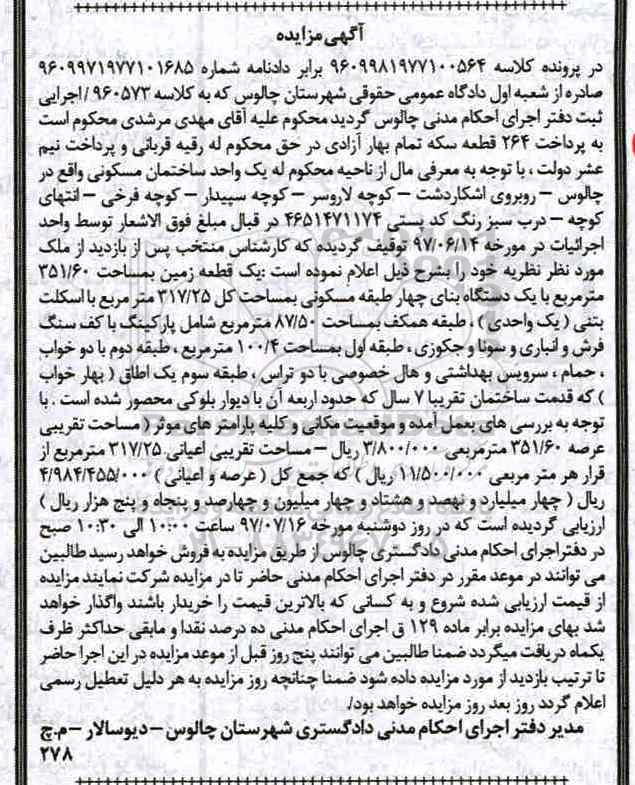 آگهی مزایده
در پرونده کلاسه ۹۶۰۹۹۸۱۹۷۷۱۰۰۵۶۴ برابر دادنامه شماره ۹۶۰۹۹۷۱۹۷۷۱۰۱۶۸۵
صادره از شعبه اول دادگاه عمومی حقوقی شهرستان چالوس که به کلاسه ۹۶۰۵۷۳/اجرایی
ثبت دفتر اجرای احکام مدنی چالوس گردید محکوم علیه آقای مهدی مرشدی محکوم است
به پرداخت ۲۶۴ قطعه سکه تمام بهار آزادی در حق محکوم له رقیه قربانی و پرداخت نیم
عشر دولت ، با توجه به معرفی مال از ناحیه محکوم له یک واحد ساختمان مسکونی واقع در
چالوس – روبروی اشکاردشت – کوچه لاروسر – کوچه سپیدار – کوچه فرخی – انتهای
کوچه – درب سبز رنگ کد پستی ۴۶۵۱۴۷۱۱۷۴ در قبال مبلغ فوق الاشعار توسط واحد
اجرائیات در مورخه ۹۷/۰۶/۱۴ توقیف گردیده که کارشناس منتخب پس از بازدید از ملک
مورد نظر نظریه خود را بشرح ذیل اعلام نموده است :یک قطعه زمین بمساحت ۳۵۱/۶۰
مترمربع با یک دستگاه بنای چهار طبقه مسکونی بمساحت کل ۳۱۷/۲۵ متر مربع با اسکلت
بتنی ( یک واحدی ) ، طبقه همکف بمساحت ۸۷/۵۰ مترمربع شامل پارکینگ با کف سنگ
فرش و انباری و سونا و جکوزی ، طبقه اول بمساحت ۱۰۰/۴ مترمربع ، طبقه دوم با دو خواب
، حمام ، سرویس بهداشتی و هال خصوصی با دو تراس ، طبقه سوم یک اطاق ( بهار خواب
) که قدمت ساختمان تقریبا ۷ سال که حدود اربعه آن با دیوار بلوکی محصور شده است . با
توجه به بررسی های بعمل آمده و موقعیت مکانی و کلیه پارامتر های موثر ( مساحت تقریبی
عرصه ۳۵۱/۶۰ مترمربعی ۳/۸۰۰/۰۰۰ ریال – مساحت تقریبی اعیانی ۳۱۷/۲۵ مترمربع از
قرار هر متر مربعی ۱۱/۵۰۰/۰۰۰ ریال ) که جمع کل ( عرصه و اعیانی ) ۴/۹۸۴/۴۵۵/۰۰۰
ریال ( چهار میلیارد و نهصد و هشتاد و چهار میلیون و چهارصد و پنجاه و پنج هزار ریال )
ارزیابی گردیده است که در روز دوشنبه مورخه ۹۷/۰۷/۱۶ ساعت ۱۰:۰۰ الی ۱۰:۳۰ صبح
در دفتراجرای احکام مدنی دادگستری چالوس از طریق مزایده به فروش خواهد رسید طالبین
می توانند در موعد مقرر در دفتر اجرای احکام مدنی حاضر تا در مزایده شرکت نمایند مزایده
از قیمت ارزیابی شده شروع و به کسانی که بالاترین قیمت را خریدار باشند واگذار خواهد
شد بهای مزایده برابر ماده ۱۲۹ ق اجرای احکام مدنی ده درصد نقدا و مابقی حداکثر ظرف
یکماه دریافت میگردد ضمنا طالبین می توانند پنج روز قبل از موعد مزایده در این اجرا حاضر
تا ترتیب بازدید از مورد مزایده داده شود ضمنا چنانچه روز مزایده به هر دلیل تعطیل رسمی
اعلام گردد روز بعد روز مزایده خواهد بود/.
مدیر دفتر اجرای احکام مدنی دادگستری شهرستان چالوس – دیوسالار – م.چ
۲۷۸